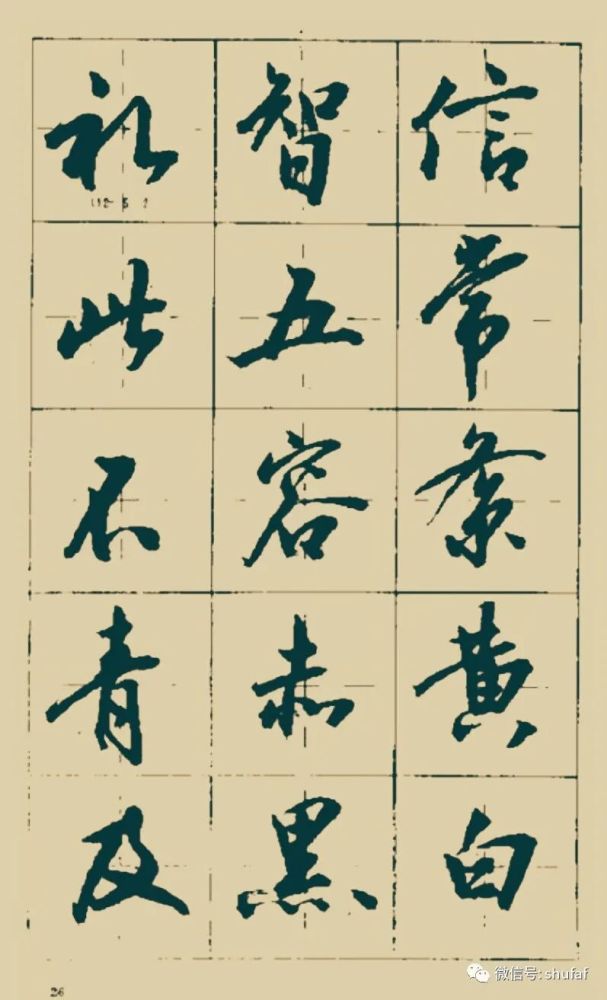 礼智信
此五常
不容紊
青赤黄
及黑白
26
微信号: shufaf